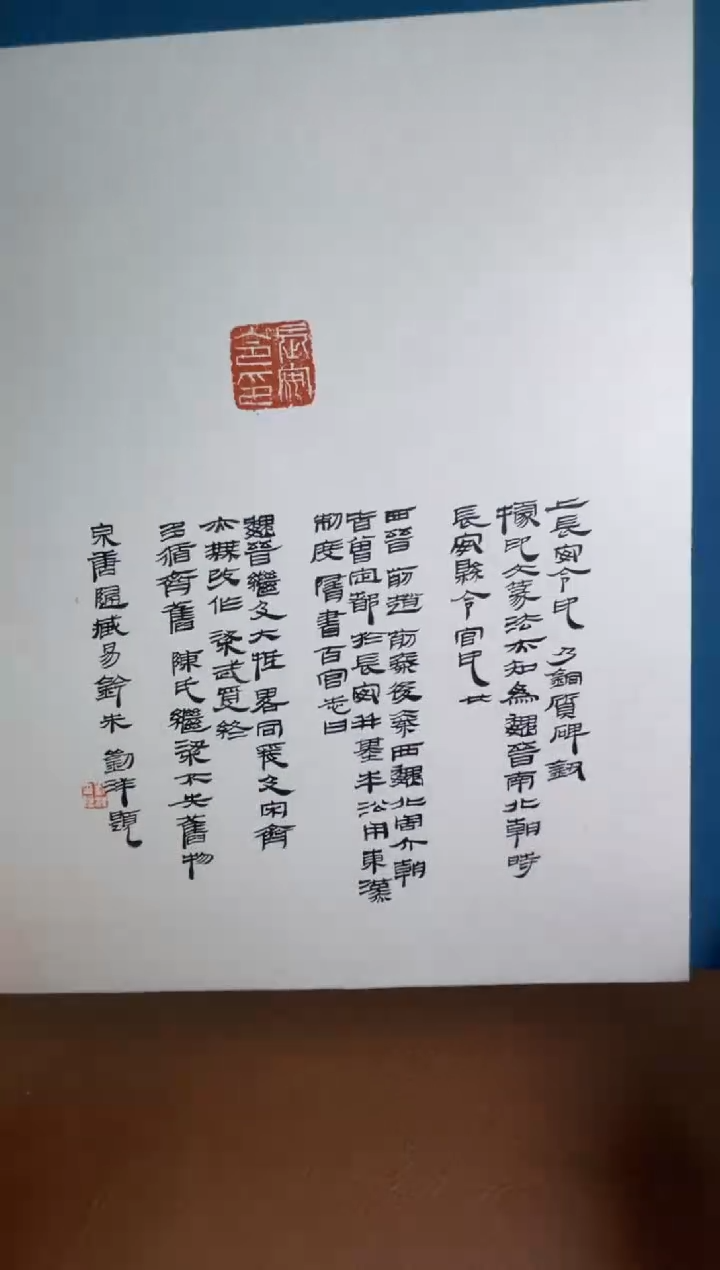 長安令印
上長安令印 乃銅質碑鈕
據印文篆法亦知為魏晉南北朝時
長安縣令官印 也
西晉 前趙 前秦後秦西魏北周六朝
皆曾定都於長安并基本沿用東漢
制度 隋書百官志曰
魏晉繼及大抵畧同爰及宋齊
亦無改作 梁武受終
多循齊舊 陳氏繼梁不失舊物
泉唐 鈐朱 題